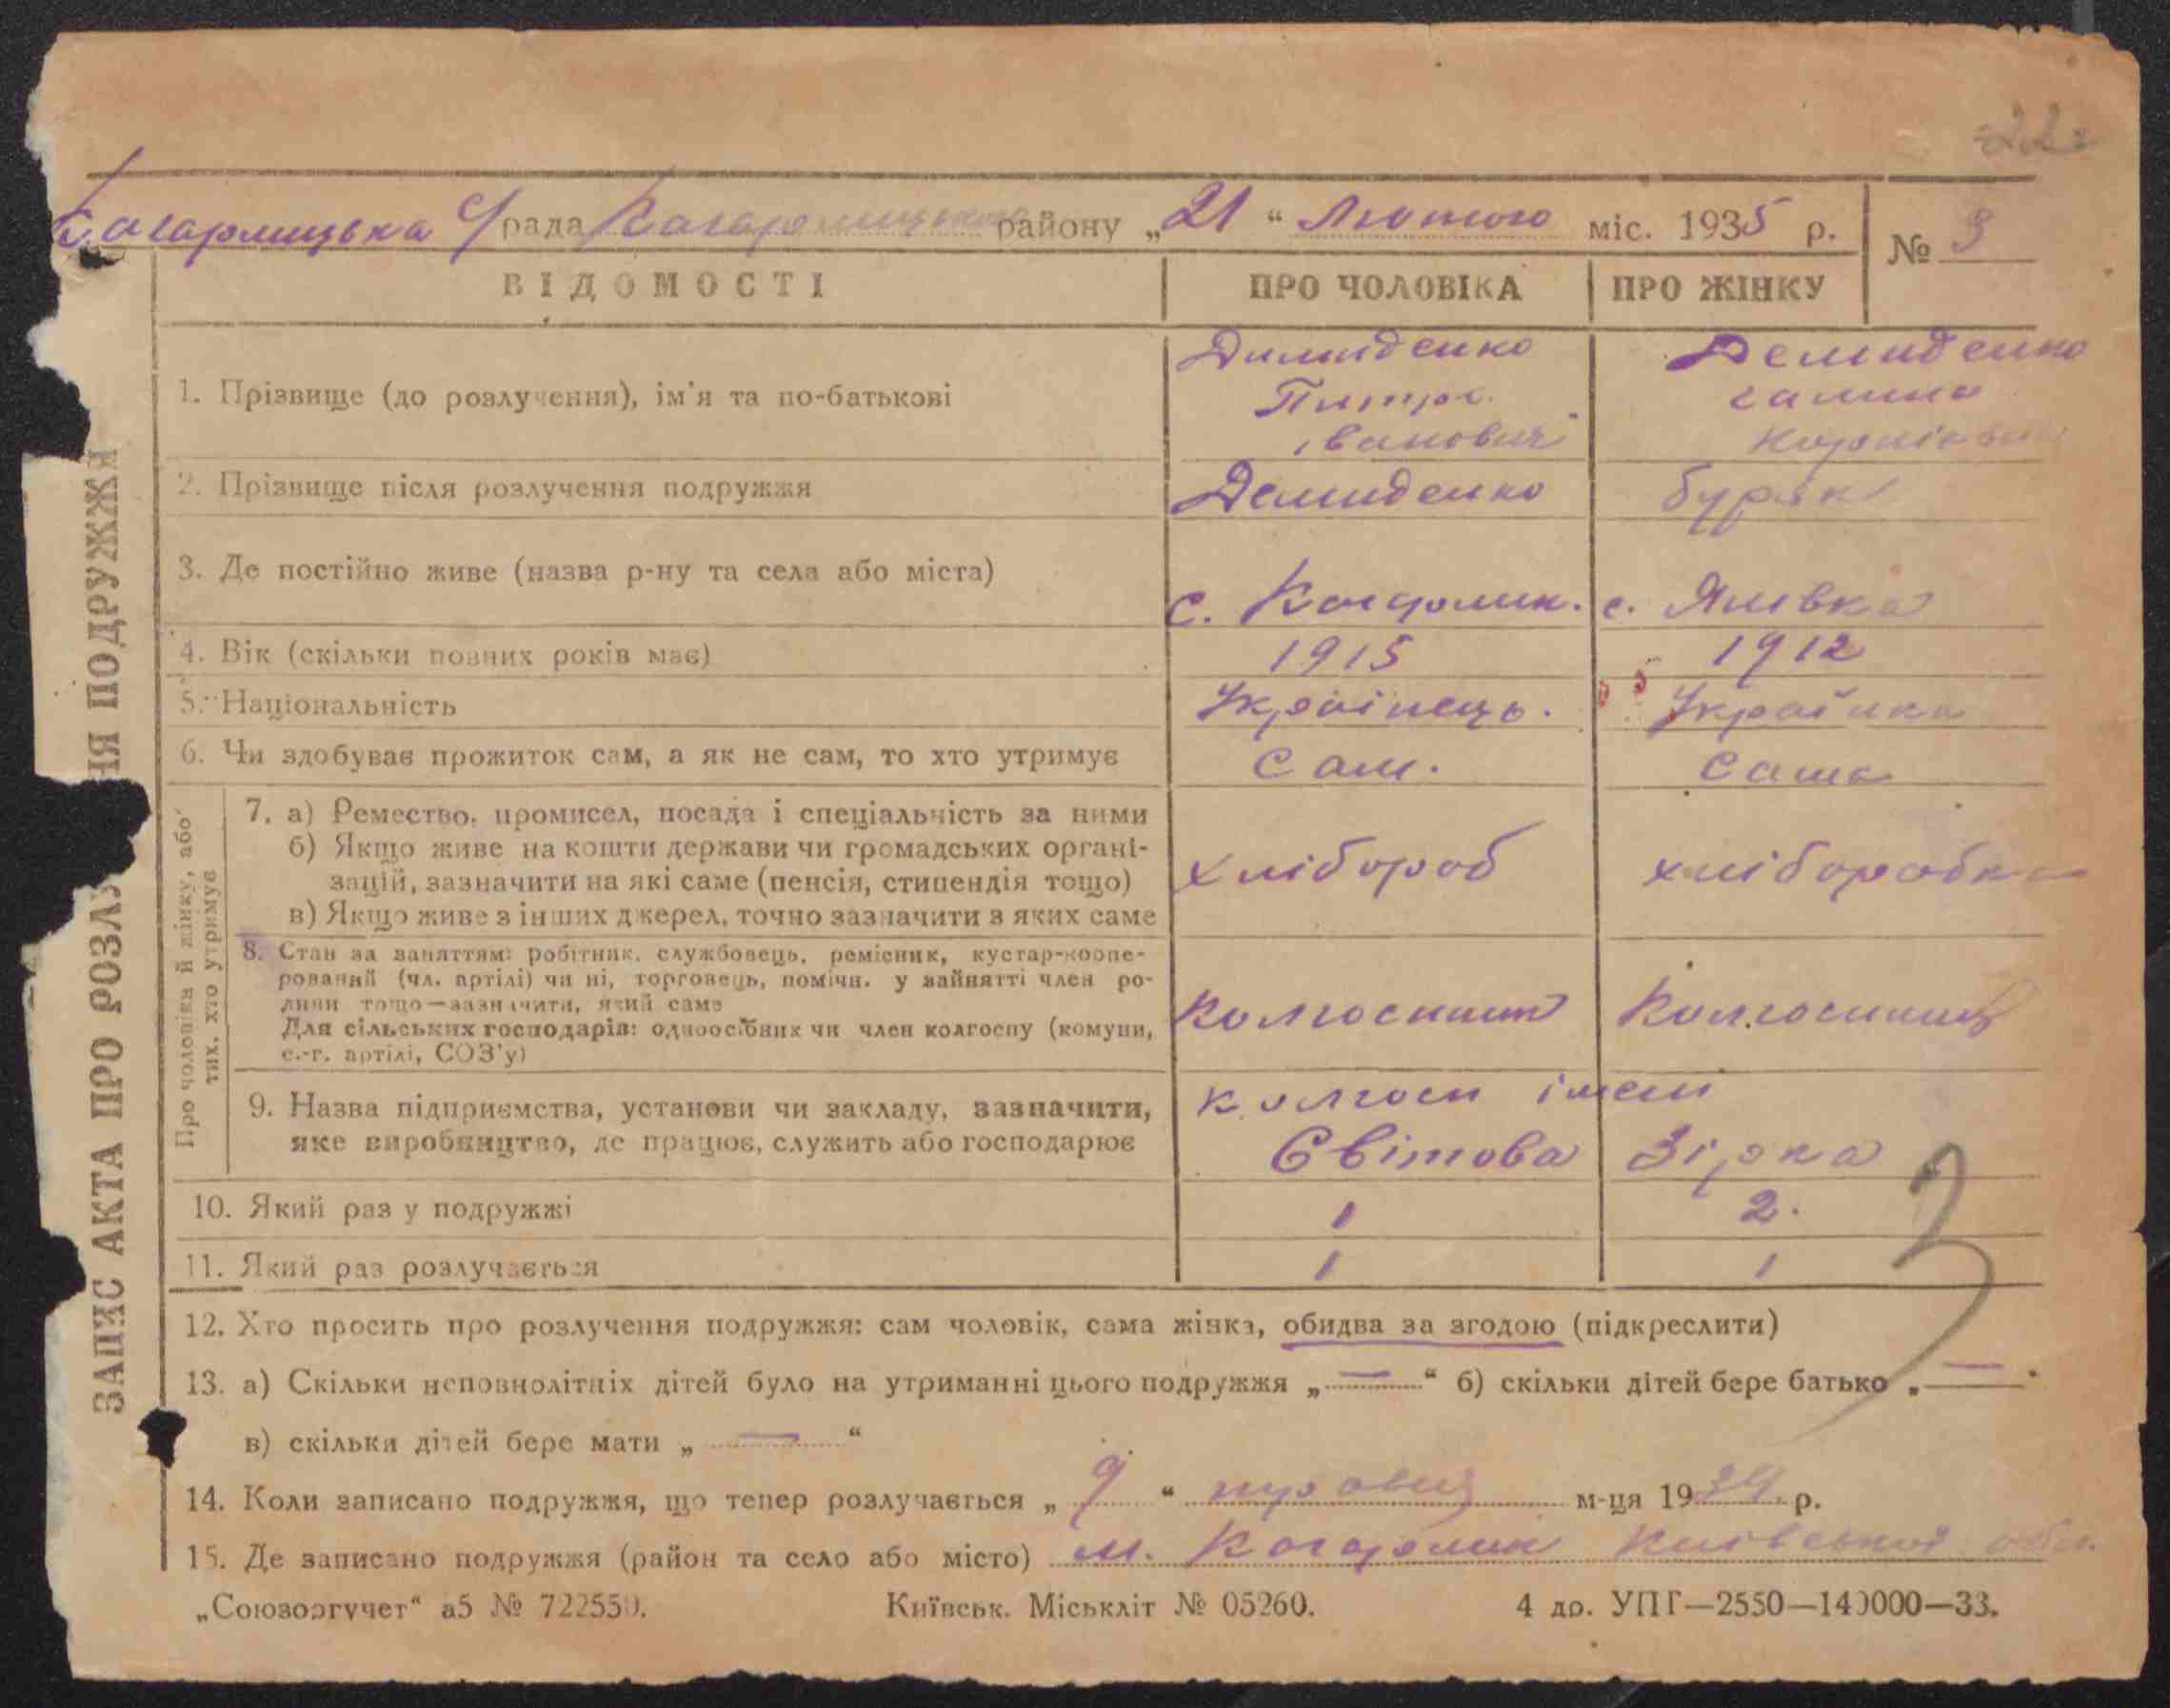 Кагарлицька С/рада Кагарлицького району „21“ Лютого міс. 1935 р. № 3
ВІДОМОСТІ ПРО ЧОЛОВІКА ПРО ЖІНКУ
ЗАПИС АКТА ПРО РОЗЛУ НЯ ПОДРУЖЖЯ
1. Прізвище (до розлучення), ім'я та по-батькові
Димиденко Демиденко
Питро Галина
івanович
2. Прізвище після розлучення подружжя Демиденко буряк
3. Де постійно живе (назва р-ну та села або міста) с. Кагарлик. с.
4. Вік (скільки повних років має) 1915 1912
5. Національність Українець. Українка
6. Чи здобуває прожиток сам, а як не сам, то хто утримує Сам. Сама
Про чоловіка й жінку, або
тих, хто утримує
7. а) Ремество, промисел, посада і спеціальність за ними
б) Якщо живе на кошти держави чи громадських органі-
зацій, зазначити на які саме (пенсія, стипендія тощо)
в) Якщо живе з інших джерел, точно зазначити з яких саме
хлібороб хліборобка
8. Стан за заняттям: робітник, службовець, ремісник, кустар-коопе-
рований (чл. артілі) чи ні, торговець, помічн. у зайнятті член ро-
дини тощо—зазначити, який саме
Для сільських господарів: одноосібник чи член колгоспу (комуни,
с.-г. артілі, СОЗ'у)
Колгоспник Колгоспниця
9. Назва підприємства, установи чи закладу, зазначити, колгосп імені
яке виробництво, де працює, служить або господарює Світова Зірка
10. Який раз у подружжі 1 2.
11. Який раз розлучається 1 1
3
12. Хто просить про розлучення подружжя: сам чоловік, сама жінка, обидва за згодою (підкреслити)
13. а) Скільки неповнолітніх дітей було на утриманні цього подружжя „—“ б) скільки дітей бере батько „—“
в) скільки дітей бере мати „—“
14. Коли записано подружжя, що тепер розлучається „9“ м-ця 1934. р.
15. Де записано подружжя (район та село або місто) м. Кагарлик Київської обл.
„Союзоргучет“ а5 № 722550. Київськ. Міськліт № 05260. 4 др. УПГ—2550—140000—33.